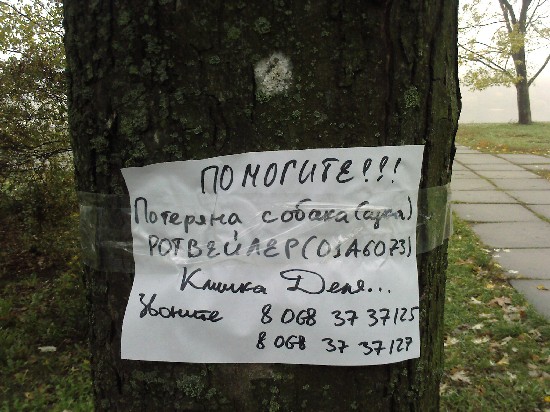 ПОМОГИТЕ!!!
Потеряна собака(сука)
РОТВЕЙЛЕР(ОЗА6073)
Кличка Деля...
Звоните 8 068 37 37125
8 068 37 37127